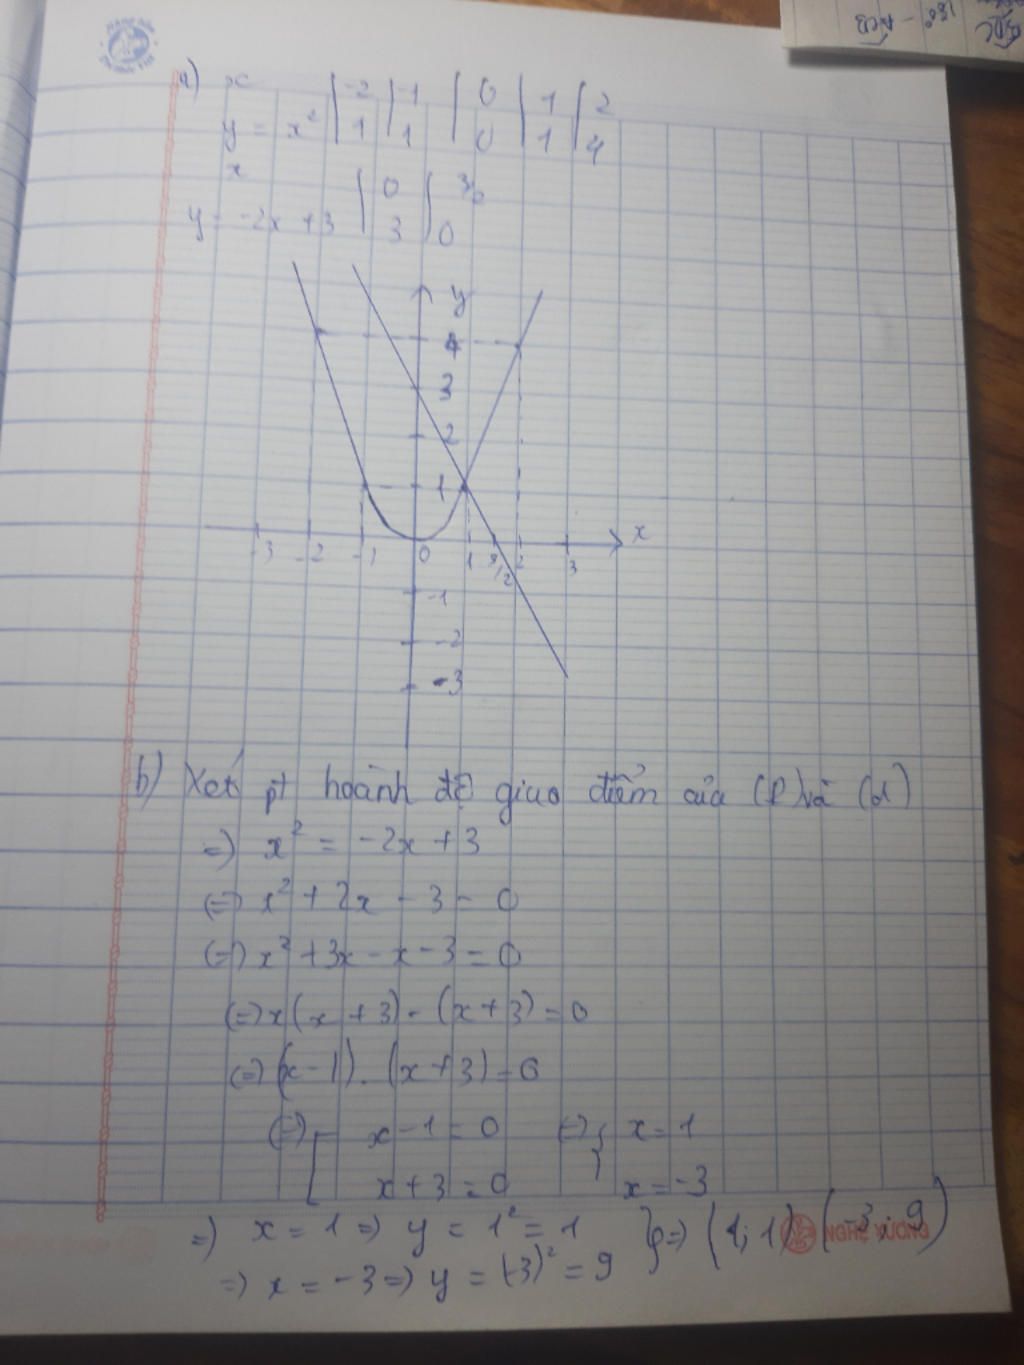 a) x | -2 | -1 | 0 | 1 | 2
y = x² | 1 | 1 | 0 | 1 | 4
x | 0 | 3/2
y = -2x + 3 | 3 | 0
y
4
3
2
1
-3 -2 -1 0 1 3/2 2 3 x
-1
-2
-3
b) Xét pt hoành độ giao điểm của (P) và (d)
=) x² = -2x + 3
(=) x² + 2x - 3 = 0
(=) x² + 3x - x - 3 = 0
(=) x(x + 3) - (x + 3) = 0
(=) (x - 1) . (x + 3) = 0
(=) [ x - 1 = 0 (=) { x = 1
x + 3 = 0 x = -3
=) x = 1 =) y = 1² = 1 } =) (1; 1) (-3; 9)
=) x = -3 =) y = (-3)² = 9